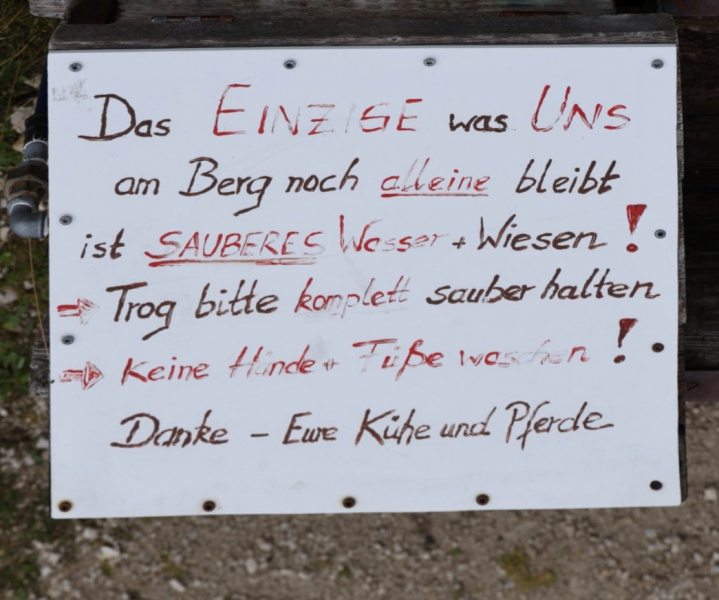 Das EINZIGE was UNS
am Berg noch alleine bleibt
ist SAUBERES Wasser + Wiesen !
⇒ Trog bitte komplett sauber halten
⇒ Keine Hände + Füße waschen !
Danke – Eure Kühe und Pferde